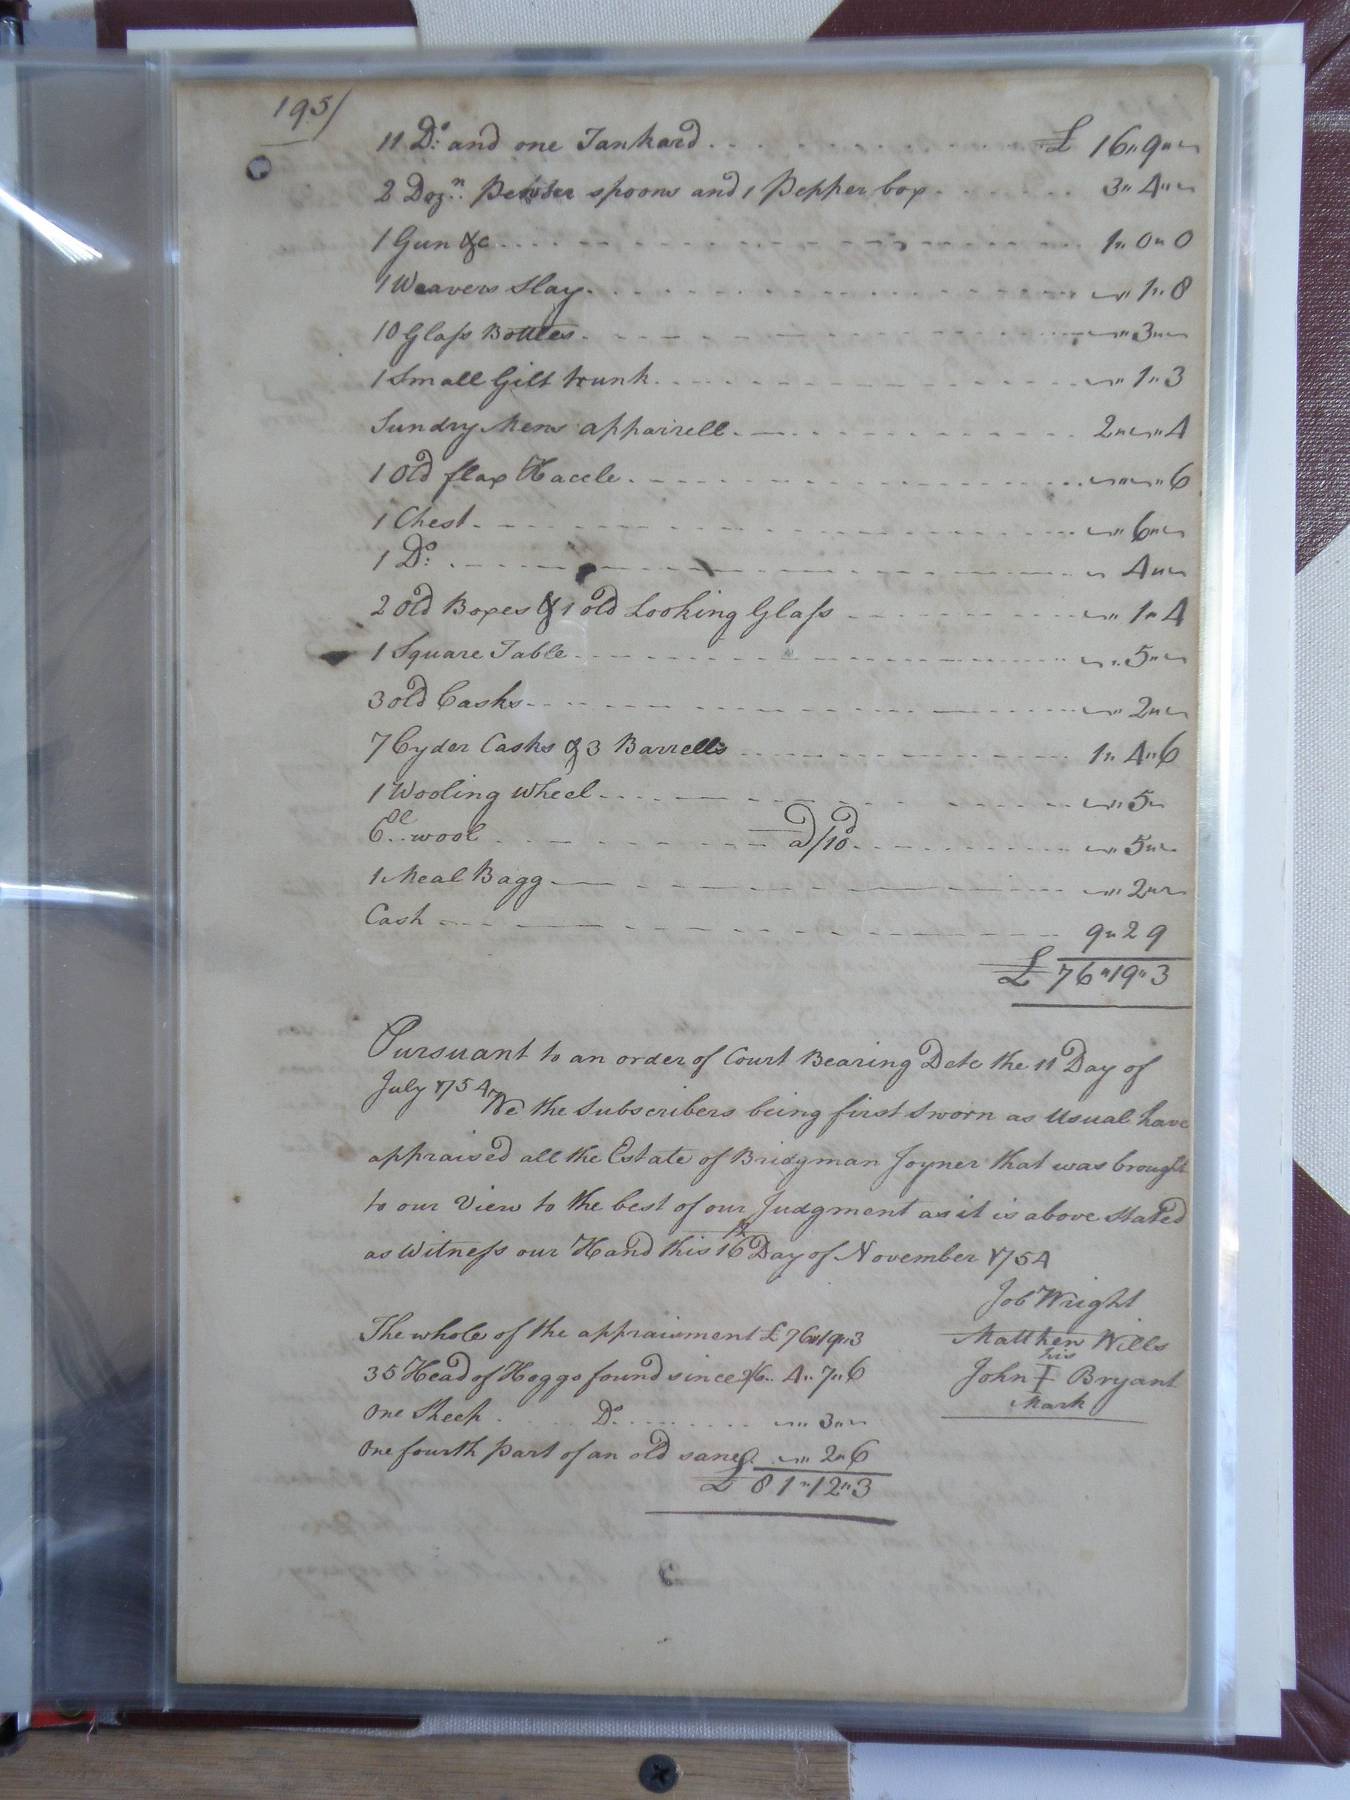 195/
11 Do: and one Tankard . . . . . . . £ 16"9"~
2 Dozn. Pewter spoons and 1 Pepper box . . . . . . 3"4"~
1 Gun &c . . . . . . 1"0"0
1 Weavers Slay . . . . . . ~"1"8
10 Glass Bottles . . . . . . ~"3"~
1 Small Gilt trunk . . . . . . ~"1"3
Sundry Mens apparrell . . . . . . 2"~"4
1 Old flax Haccle . . . . . . ~"~"6
1 Chest . . . . . . ~"6"~
1 Do: . . . . . . ~ 4"~
2 old Boxes & 1 old Looking Glass . . . . . . ~"1"4
1 Square Table . . . . . . ~"5"~
3 old Casks . . . . . . ~"2"~
7 Cyder Casks & 3 Barrells . . . . . . 1"4"6
1 Wooling wheel . . . . . . ~"5~
6 ll.. wool . . . . . . a/10d . . . . . . ~"5"~
1 Meal Bagg . . . . . . ~"2"~
Cash . . . . . . 9"2 9
£ 76"19"3
Pursuant to an order of Court Bearing Date the 11 Day of
July 1754 We the Subscribers being first Sworn as Usual have
appraised all the Estate of Bridgman Joyner that was brought
to our View to the best of our Judgment as it is above Stated
as Witness our Hand this 16th Day of November 1754
Job Wright
Matthew Wills
his
John I Bryant
Mark
The whole of the appraisment £ 76"19"3
35 Head of Hoggs found since 2/6.. 4"7"6
One Sheep . . . Do. . . . . . . ~"3"~
One fourth part of an old sane . . ~"2"6
£ 81"12"3